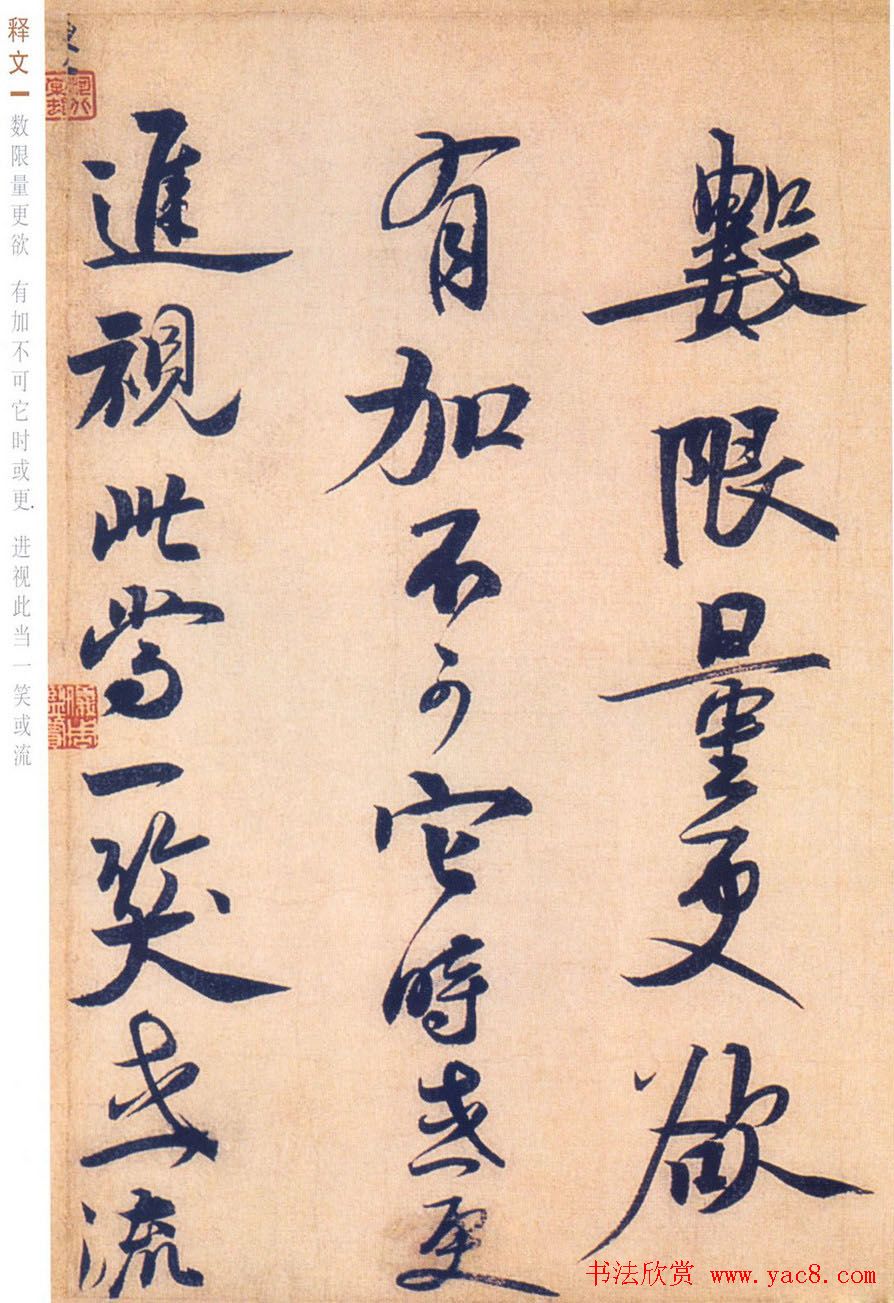 數限量更欲
有加不可它時或更
進視此當一笑或流
释文
数限量更欲 有加不可它时或更 进视此当一笑或流
书法欣赏 www.yac8.com